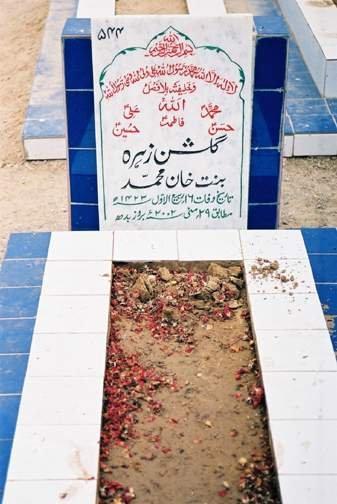 ۵۴۴
الله
بسم الله الرحمن الرحيم
لا اله الا الله محمد رسول الله علی ولی الله وصی رسول الله
وخليفته بلا فصل
محمدؐ الله علیؑ
حسنؑ فاطمہؑ حسینؑ
گلشن زہرہ
بنت خان محمد
تاریخ وفات ۱۶ ربیع الاول ۱۴۲۳ھ
مطابق ۲۹ مئی ۲۰۰۲ء بروز بدھ